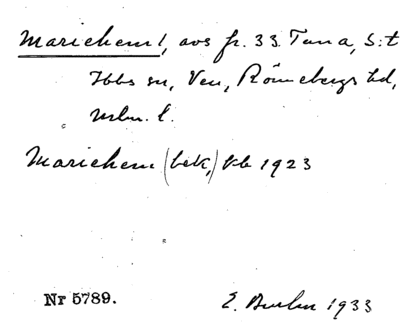 Mariehem l, avs fr. 33 Tuna, S:t
Ibbs sn, Ven, Rönnebergs hd,
Mlm. l.
Mariehem (bek,) kb 1923
Nr 5789.
E. 1933